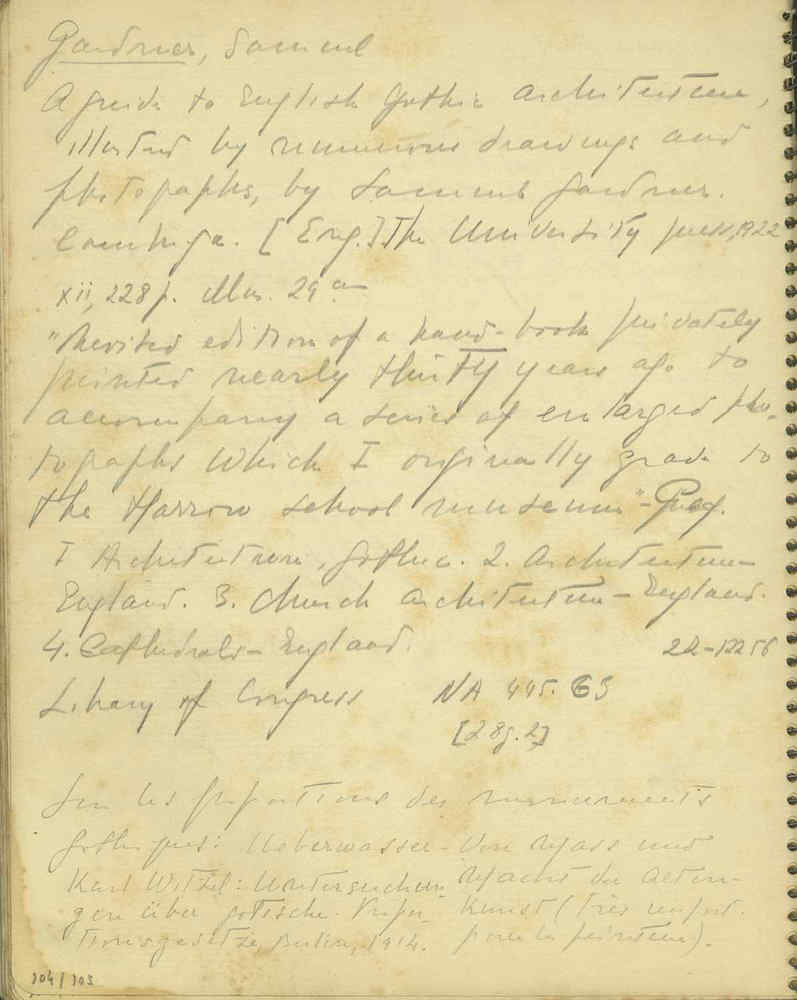 Gardner, Samuel
A guide to English Gothic architecture,
illustred by numerous drawings and
photographs, by Samuel Gardner.
Cambridge. [Eng.] The University press, 1922
xii, 228 p. illus. 29 cm
"Revised edition of a hand-book privately
printed nearly thirty years ago to
accompany a series of enlarged pho-
tographs which I originally gave to
the Harrow school museum" - Pref.
I Architecture, gothic. 2. Architecture-
England. 3. Church architecture - England.
4. Cathedrals - England. 22-12256
Library of Congress NA 445. G3
[28g.2]
Sur les proportions des monuments
gothiques: Ueberwasser - Von Mass und
Karl Witzel: Untersuchun Macht der alten
gen über gotische Propor- Kunst (très import.
tionsgesetze, Berlin, 1914. pour la peinture).
104/103